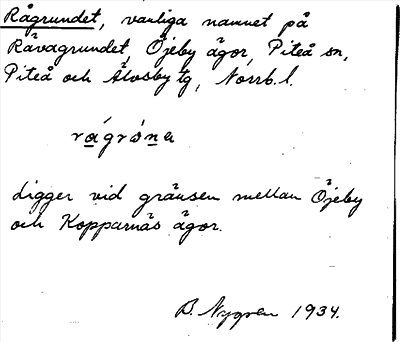 Rågrundet, vanliga namnet på
Råvagrundet, Öjeby ägor, Piteå sn,
Piteå och Älvsby tg, Norrb. l.
rágrǻna
Ligger vid gränsen mellan Öjeby
och Kopparnäs ägor.
B. Nygren 1934.